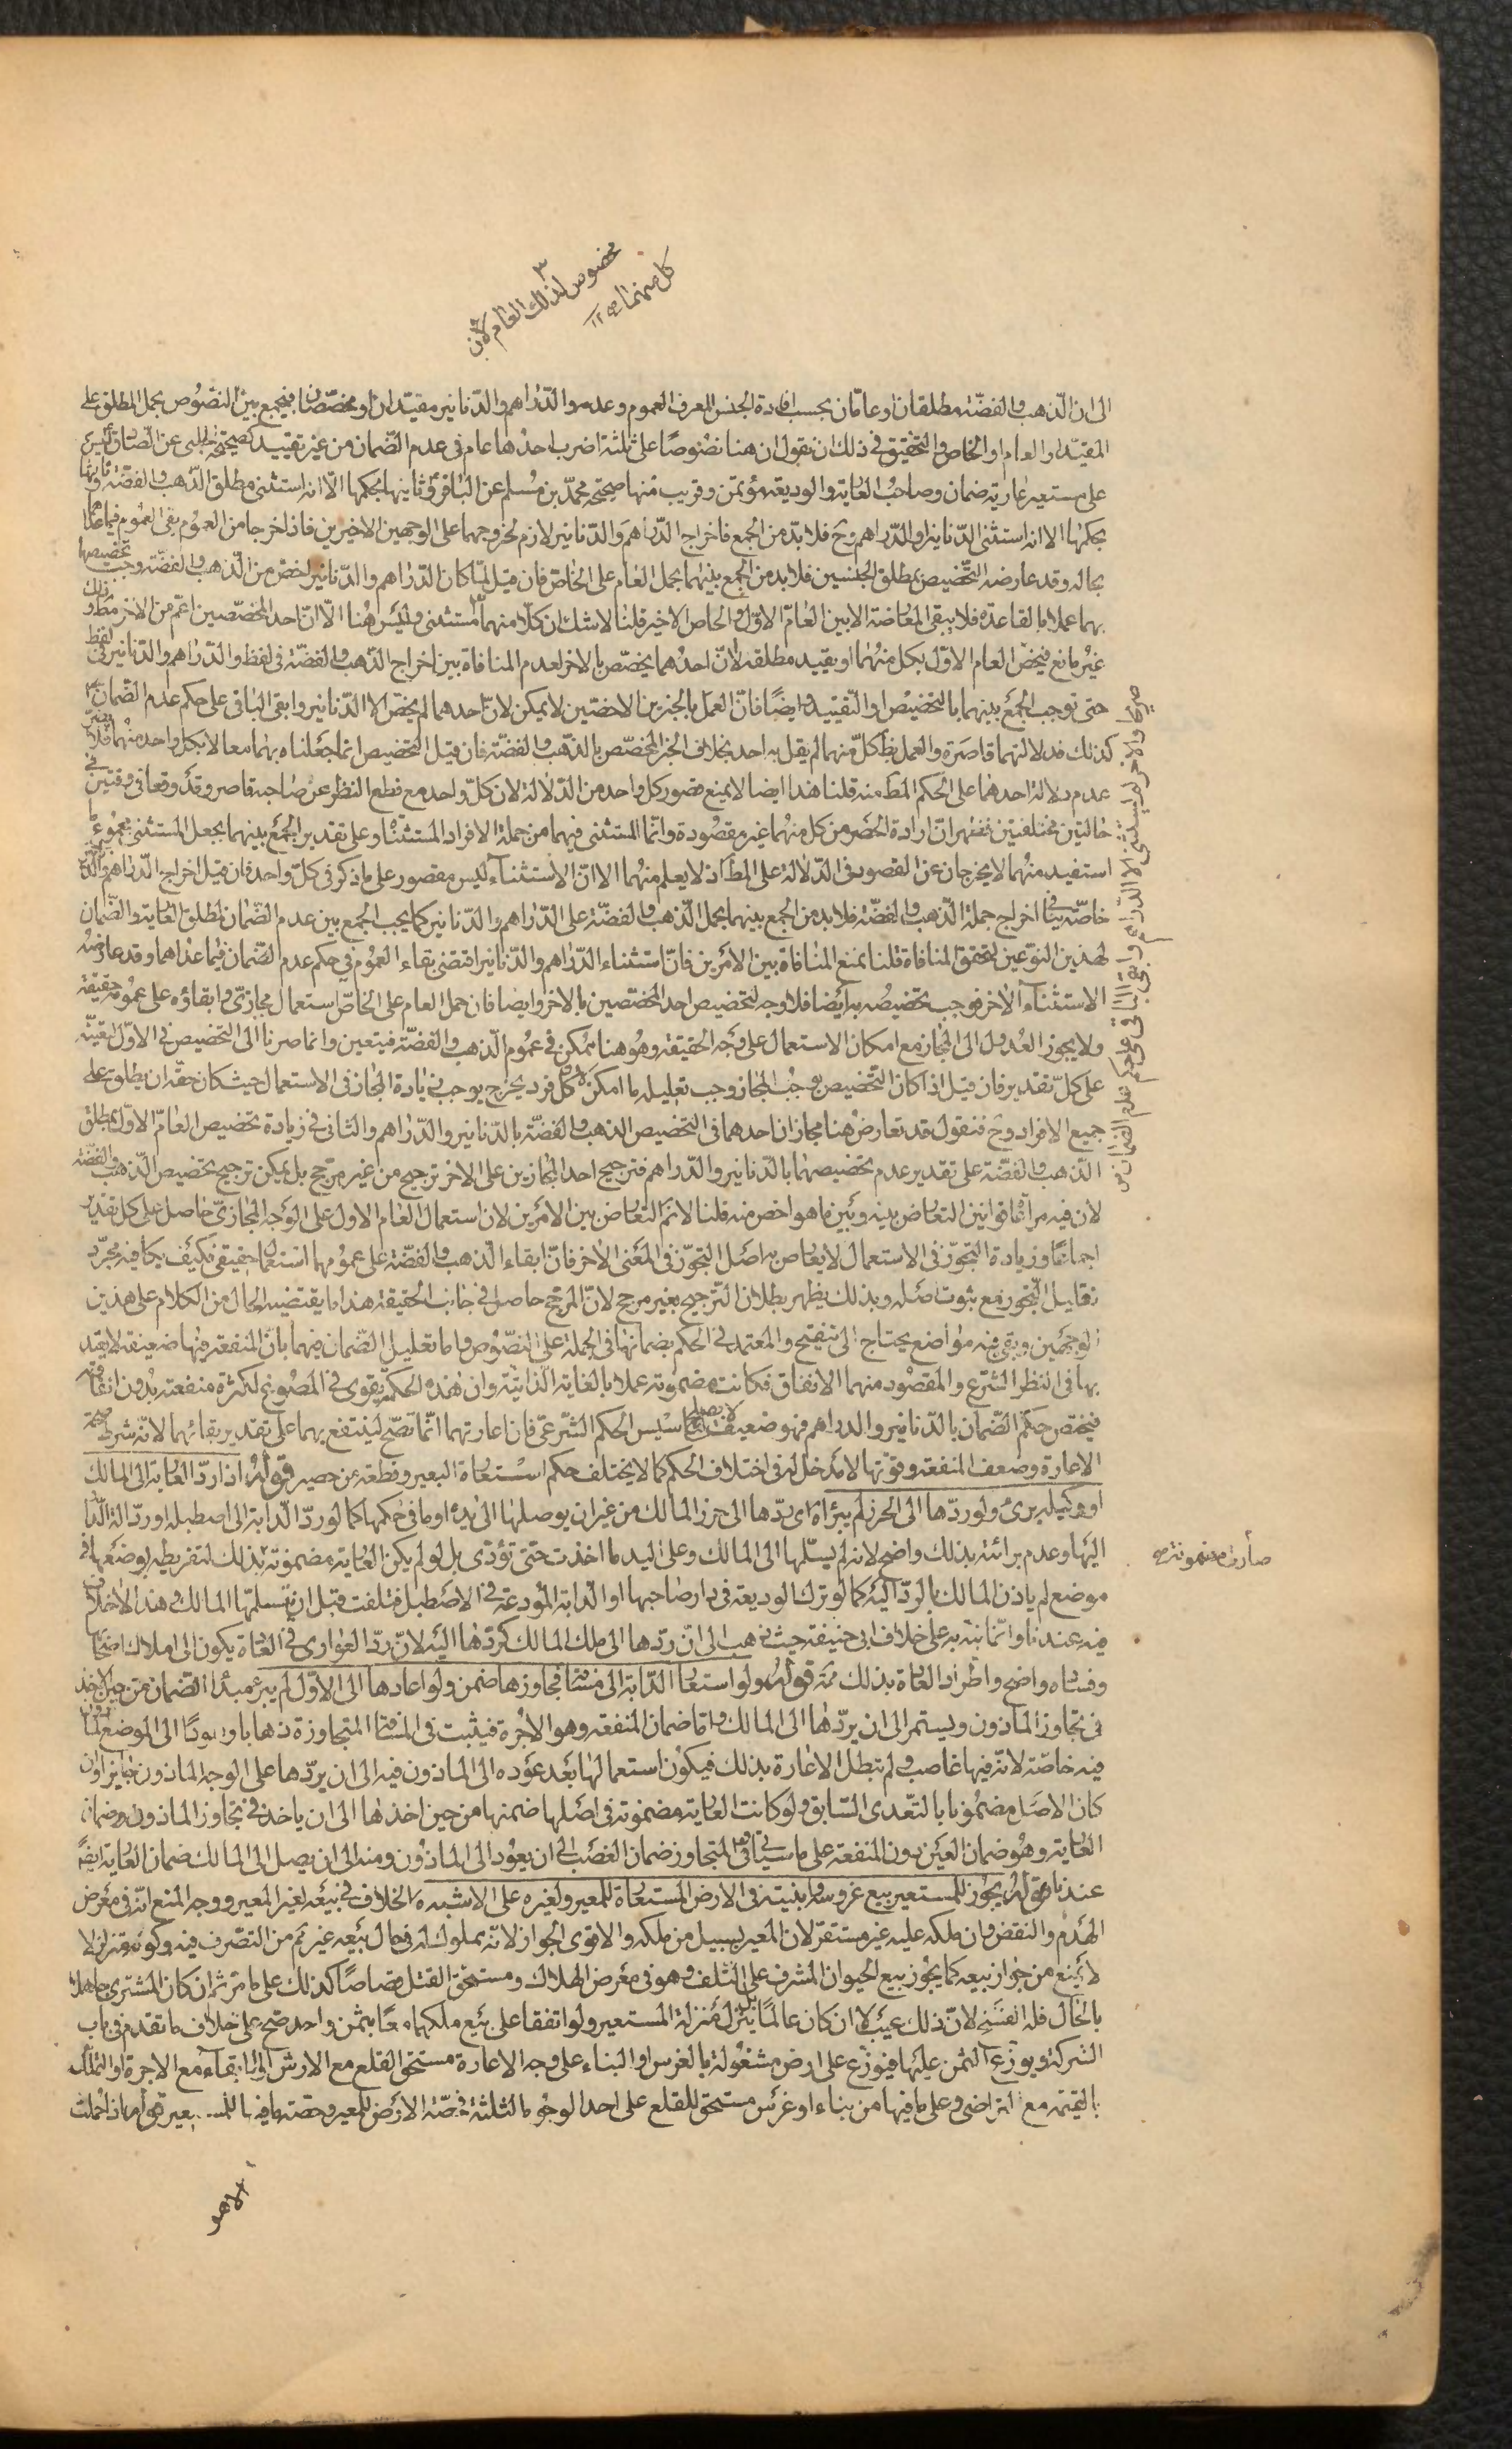 مخصوص لذلك العام لان
كل منهما
الى ان الذهب والفضة مطلقان او عامان بحسب افادة الجنس المعرف العموم وعدمه والدراهم والدنانير مقيدان او مخصصان فيجمع بين النصوص بحمل المطلق على
المقيد او العام او الخاص والتحقيق في ذلك ان نقول ان هنا نصوصا على ثلثة اضرب احدها عام في عدم الضمان من غير تقييد كصحيحة الحلبي عن الصادق ليس
على مستعير عارية ضمان وصاحب العارية والوديعة مؤتمن وقريب منها صحيحة محمد بن مسلم عن الباقر وثانيها بحكمها الا انه استثنى مطلق الذهب والفضة وثالثها
بحكمها الا انه استثنى الدنانير او الدراهم وح فلا بد من الجمع فاخراج الدراهم والدنانير لازم لخروجهما على الوجهين الاخيرين فاذا خرجا من العموم بقي العموم فيما عداهما
بحاله وقد عارضه التخصيص بمطلق الجنسين فلا بد من الجمع بينهما بحمل العام على الخاص فان قيل لما كان الدراهم والدنانير اخص من الذهب والفضة وجب تخصيصهما
بهما عملا بالقاعدة فلا يبقى المعارضة الا بين العام الاول والخاص الاخير قلنا لا شك ان كلا منهما مستثنى وليس هنا الا ان احد المخصصين اعم من الاخر مط وذلك
غير مانع فيخص العام الاول بكل منهما او يقيد مطلقه لا ان احدهما يخصص بالاخر لعدم المنافاة بين اخراج الذهب والفضة في لفظ والدراهم والدنانير في لفظ
حتى توجب الجمع بينهما بالتخصيص او التقييد وايضا فان العمل بالخبرين الاخصين لا يمكن لان احدهما لم يخص الا الدنانير وابقى الباقي على حكم عدم الضمان
كذلك فدلالتهما قاصرة والعمل بظ كل منهما لم يقل به احد بخلاف الخبر المخصص بالذهب والفضة فان قيل التخصيص انما جعلناه بهما معا لا بكل واحد منهما فلا يضر
عدم دلالة احدهما على الحكم المط منه قلنا هذا ايضا لا يمنع قصور كل واحد من الدلالة لان كل واحد مع قطع النظر عن صاحبه قاصر وقد وقعا في وقتين في
حالتين مختلفتين فظهر ان ارادة الحصر من كل منهما غير مقصودة وانما المستثنى فيهما من جملة الافراد المستثناة وعلى تقدير الجمع بينهما بجعل المستثنى مجموع ما
استفيد منهما لا يخرجان عن القصور في الدلالة على المط اذ لا يعلم منهما الا ان الاستثناء ليس مقصور على ما ذكر في كل واحد فان قيل اخراج الدراهم والدنانير
خاصة ينافي اخراج جملة الذهب والفضة فلا بد من الجمع بينهما بحمل الذهب والفضة على الدراهم والدنانير كما يجب الجمع بين عدم الضمان لمطلق العارية والضمان
لهذين النوعين لتحقق المنافاة قلنا نمنع المنافاة بين الامرين فان استثناء الدراهم والدنانير اقتضى بقاء العموم في حكم عدم الضمان فيما عداهما وقد عارضه
الاستثناء الاخر فوجب تخصيصه به ايضا فلا وجه لتخصيص احد المخصصين بالاخر وايضا فان حمل العام على الخاص استعمال مجازي وابقاؤه على عمومه حقيقة
ولا يجوز العدول الى المجاز مع امكان الاستعمال على وجه الحقيقة وهو هنا ممكن في عموم الذهب والفضة فيتعين وانما صرنا الى التخصيص في الاول لتعينه
على كل تقدير فان قيل اذا كان التخصيص يوجب المجاز وجب تقليله ما امكن لان كل فرد يخرج يوجب زيادة المجاز في الاستعمال حيث كان حقه ان يطلق على
جميع الافراد وح فنقول قد تعارض هنا مجازان احدهما في التخصيص الذهب والفضة بالدنانير والدراهم والثاني في زيادة تخصيص العام الاول بمطلق
الذهب والفضة على تقدير عدم تخصيصهما بالدنانير والدراهم فترجيح احد المجازين على الاخر ترجيح من غير مرجح بل يمكن ترجيح تخصيص الذهب والفضة
لان فيه مراعاة قوانين التعارض بينه وبين ما هو اخص منه قلنا لا نم التعارض بين الامرين لان استعمال العام الاول على الوجه المجازي حاصل على كل تقدير
اجماعا وزيادة التجوز في الاستعمال لا يعارض به اصل التجوز في المعنى الاخر فان ابقاء الذهب والفضة على عمومهما استعمال حقيقي فكيف يكافيه مجرد
تقليل التجوز مع ثبوت اصله وبذلك يظهر بطلان الترجيح بغير مرجح لان المرجح حاصل في جانب الحقيقة هذا ما يقتضيه الحال من الكلام على هذين
الوجهين وبقي فيه مواضع يحتاج الى تنقيح والمعتمد في الحكم بضمانها في الجملة على النصوص واما تعليل الضمان فيهما بان المنفعة فيها ضعيفة لا يعتد
بها في النظر الشرع والمقصود منهما الانفاق فكانت مضمونة عملا بالغاية الذاتية وان هذه الحكمة يقوى في المصوغ لكثرة منفعته بدون انفاقه
فيختص حكم الضمان بالدنانير والدراهم فهو ضعيف لا يصلح لتاسيس الحكم الشرعي فان اعارتهما انما تصح لينتفع بهما على تقدير بقائهما لانه شرط صحة
الاعارة وضعف المنفعة وقوتها لا مدخل له في اختلاف الحكم كما لا يختلف حكم استعارة البعير وقطعة من حصير قوله اذا رد العارية الى المالك
او وكيله برئ ولو ردها الى الحرز لم يبرأ اي ردها الى حرز المالك من غير ان يوصلها الى يده او ما في حكمها كما لو رد الدابة الى اصطبله او رد الة الدابة
اليها وعدم برائته بذلك واضح لانه لم يسلمها الى المالك وعلى اليد ما اخذت حتى تؤدى بل لو لم يكن العارية مضمونة بذلك لتفريطه بوضعها في
موضع لم ياذن المالك بالرد اليه كما لو ترك الوديعة في دار صاحبها او الدابة المودعة في الاصطبل فتلفت قبل ان يتسلمها المالك وهذا لا خلاف
فيه عندنا وانما نبه به على خلاف ابي حنيفة حيث ذهب الى ان ردها الى ملك المالك كردها اليه لان رد العواري في العادة يكون الى املاك اصحابها
وفساده واضح واطراد العادة بذلك مم قوله ولو استعار الدابة الى مسافة فجاوزها ضمن ولو اعادها الى الاول لم يبرء مبدأ الضمان من حين الاخذ
في تجاوز الماذون ويستمر الى ان يردها الى المالك واما ضمان المنفعة وهو الاجرة فيثبت في المسافة المتجاوزة ذهابا وعودا الى الموضع الماذون
فيه خاصة لانه فيها غاصب ولم تبطل الاعارة بذلك فيكون استعمالها بعد عوده الى الماذون فيه الى ان يردها على الوجه الماذون جايزا وان
كان الاصل مضمونا بالتعدي السابق ولو كانت العارية مضمونة في اصلها ضمنها من حين اخذها الى ان ياخذ في تجاوز الماذون ضمان
العارية وهو ضمان العين دون المنفعة على ما سياتي وفي المتجاوز ضمان الغصب الى ان يعود الى الماذون ومنه الى ان يصل الى المالك ضمان العارية ايضا
عندنا قوله يجوز للمستعير بيع غروسه وابنيته في الارض المستعارة للمعير ولغيره على الاشبه الخلاف في بيعه لغير المعير ووجه المنع انه في معرض
الهدم والنقض وان ملكه عليه غير مستقر لان المعير بسبيل من ملكه والاقوى الجواز لانه مملوك له في حال بيعه غير مم من التصرف فيه وكونه متزلزلا
لا يمنع من جواز بيعه كما يجوز بيع الحيوان المشرف على التلف وهو في معرض الهلاك ومستحق القتل قصاصا كذلك على ما مر ثم ان كان المشتري جاهلا
بالحال فله الفسخ لان ذلك عيب لا ان كان عالما بل ينزل منزلة المستعير ولو اتفقا على بيع ملكهما معا بثمن واحد صح على خلاف ما تقدم في باب
الشركة ويوزع الثمن عليهما فيوزع على ارض مشغولة بالغرس او البناء على وجه الاعارة مستحق القلع مع الارش او الابقاء مع الاجرة او التملك
بالقيمة مع التراضي وعلى ما فيها من بناء او غرس مستحق للقلع على احد الوجوه الثلثة فحصة الارض للمعير وحصة ما فيها للمستعير قوله اذا حملت
صارت مضمونة
الاهو